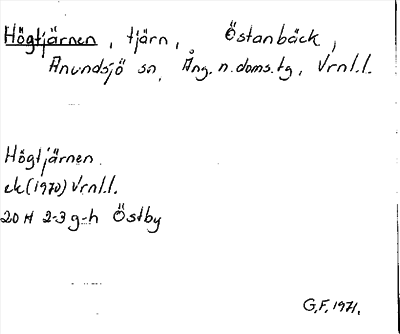 Högtjärnen, tjärn, Östanbäck,
Anundsjö sn, Ång. n. doms. tg, Vrnl.l.
Högtjärnen
ek (1970) Vrnl.l.
20 H 2-3 g-h Östby
G.F. 1971.